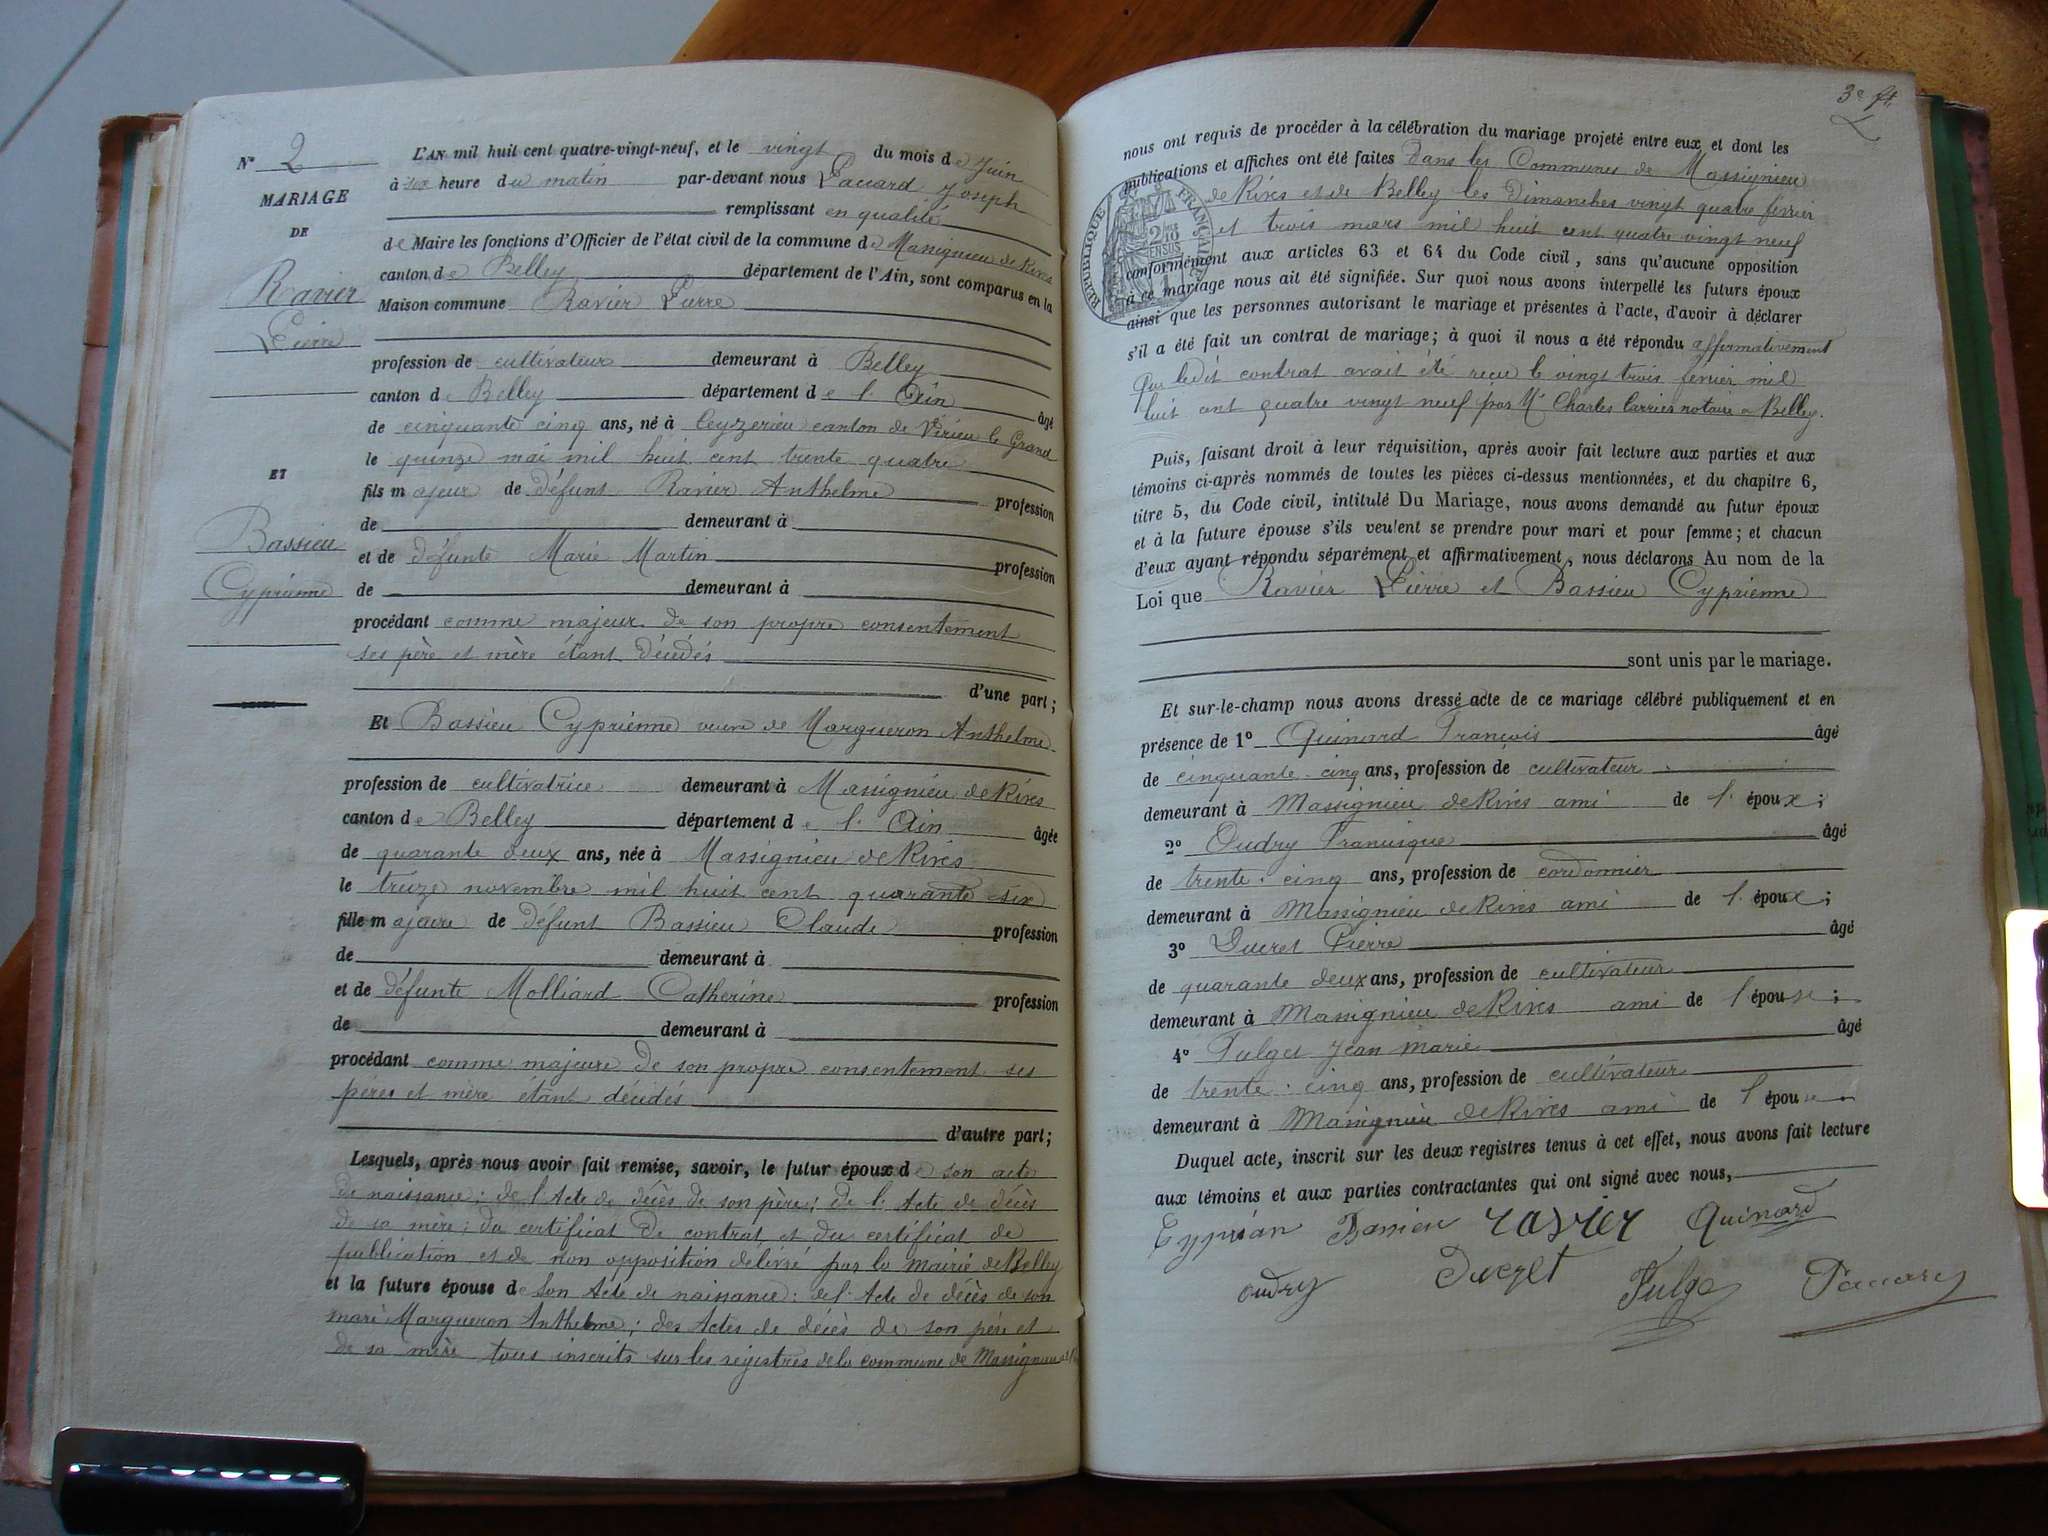 N° 2
MARIAGE
DE
Ravier
Pierre
ET
Bassieu
Cyprienne
L'AN mil huit cent quatre-vingt-neuf, et le vingt du mois de Juin
à six heure du matin par-devant nous Paccard Joseph
remplissant en qualité
de Maire les fonctions d'Officier de l'état civil de la commune de Massignieu de Rives
canton de Belley département de l'Ain, sont comparus en la
Maison commune Ravier Pierre
profession de cultivateur demeurant à Belley
canton de Belley département de l'Ain âgé
de cinquante cinq ans, né à Ceyzerieu canton de Virieu le Grand
le quinze mai mil huit cent trente quatre
fils majeur de défunt Ravier Anthelme profession
de demeurant à
et de défunte Marie Martin profession
de demeurant à
procédant comme majeur de son propre consentement
ses père et mère étant décédés
d'une part;
Et Bassieu Cyprienne veuve de Margueron Anthelme
profession de cultivatrice demeurant à Massignieu de Rives
canton de Belley département de l'Ain âgée
de quarante deux ans, née à Massignieu de Rives
le treize novembre mil huit cent quarante six
fille majeure de défunt Bassieu Claude profession
de demeurant à
et de défunte Molliard Catherine profession
de demeurant à
procédant comme majeure de son propre consentement ses
pères et mère étant décédés
d'autre part;
Lesquels, après nous avoir fait remise, savoir, le futur époux de son acte
de naissance; de l'Acte de décès de son père; de l'Acte de décès
de sa mère; du certificat de contrat et du certificat de
publication et de non opposition delivré par la mairie de Belley
et la future épouse de Son Acte de naissance: de l'Acte de décès de son
mari Margueron Anthelme; des Actes de décès de son père et
de sa mère tous inscrits sur les régistres de la commune de Massignieu
3e ft.
nous ont requis de procéder à la célébration du mariage projeté entre eux, et dont les
publications et affiches ont été faites Dans les Communes de Massignieu
de Rives et de Belley les Dimanches vingt quatre février
et trois mars mil huit cent quatre vingt neuf
RÉPUBLIQUE FRANÇAISE
conformément aux articles 63 et 64 du Code civil, sans qu'aucune opposition
à ce mariage nous ait été signifiée. Sur quoi nous avons interpellé les futurs époux
ainsi que les personnes autorisant le mariage et présentes à l'acte, d'avoir à déclarer
s'il a été fait un contrat de mariage; à quoi il nous a été répondu affirmativement
Que ledit contrat avait été reçu le vingt trois février mil
huit cent quatre vingt neuf par Me Charles Carrier notaire a Belley.
Puis, faisant droit à leur réquisition, après avoir fait lecture aux parties et aux
témoins ci-après nommés de toutes les pièces ci-dessus mentionnées, et du chapitre 6,
titre 5, du Code civil, intitulé Du Mariage, nous avons demandé au futur époux
et à la future épouse s'ils veulent se prendre pour mari et pour femme; et chacun
d'eux ayant répondu séparément et affirmativement, nous déclarons Au nom de la
Loi que Ravier Pierre et Bassieu Cyprienne
sont unis par le mariage.
Et sur-le-champ nous avons dressé acte de ce mariage célébré publiquement et en
présence de 1° Quinard François âgé
de cinquante-cinq ans, profession de cultivateur
demeurant à Massignieu de Rives ami de l'époux;
2° Oudry Francisque âgé
de trente-cinq ans, profession de cordonnier
demeurant à Massignieu de Rives ami de l'époux;
3° Ducret Pierre âgé
de quarante deux ans, profession de cultivateur
demeurant à Massignieu de Rives ami de l'épouse;
4° Fulget Jean Marie âgé
de trente-cinq ans, profession de cultivateur
demeurant à Massignieu de Rives ami de l'épouse.
Duquel acte, inscrit sur les deux registres tenus à cet effet, nous avons fait lecture
aux témoins et aux parties contractantes qui ont signé avec nous,
Cyprian Bassieu ravier Quinard
oudry Ducret Fulge Paccard